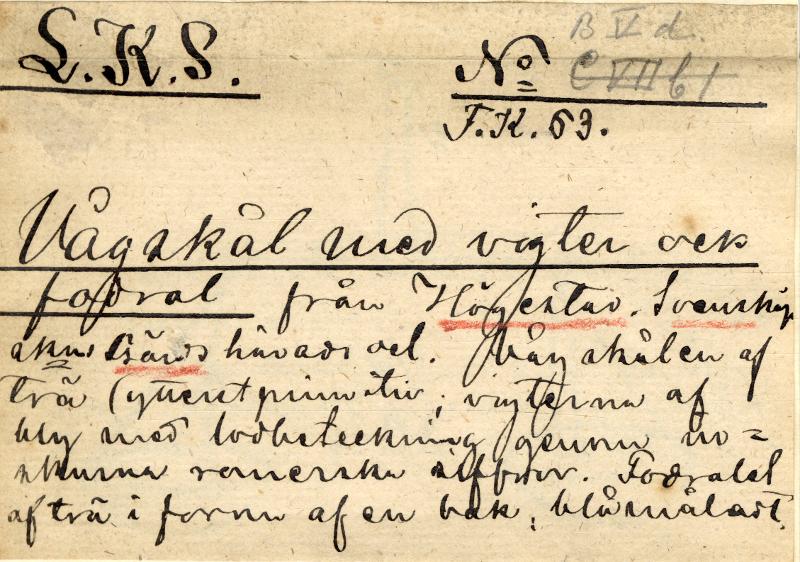 L.K.S.
B V d.
No C VII b 1
F.K. 63.
Vågskål med vigter och
fodral från Högestad. Svensköp
härads vel. Vågskålen af
trä (ytterst primitiv; vigterna af
bly med lodbeteckning genom in=
skurna romerska siffror. Fodralet
af trä i form af en bok, blåmåladt.